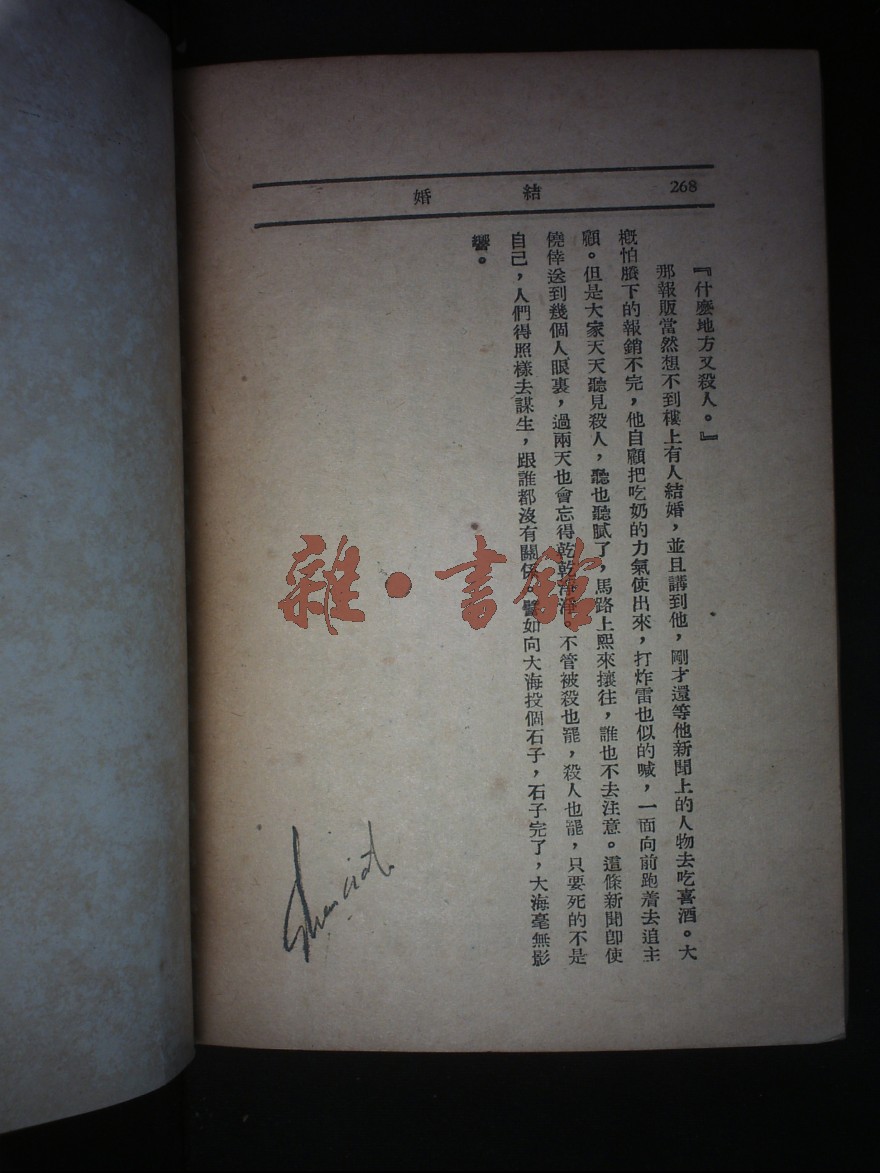 268
結婚
『什麼地方又殺人。』
那報販當然想不到樓上有人結婚，並且講到他，剛才還等他新聞上的人物去吃喜酒。大
概怕賸下的報銷不完，他自顧把吃奶的力氣使出來，打炸雷也似的喊，一面向前跑着去追主
顧。但是大家天天聽見殺人，聽也聽膩了，馬路上熙來攘往，誰也不去注意。這條新聞卽使
僥倖送到幾個人眼裏，過兩天也會忘得乾乾淨淨。不管被殺也罷，殺人也罷，只要死的不是
自己，人們得照樣去謀生，跟誰都沒有關係。譬如向大海投個石子，石子完了，大海毫無影
響。
雜·書館